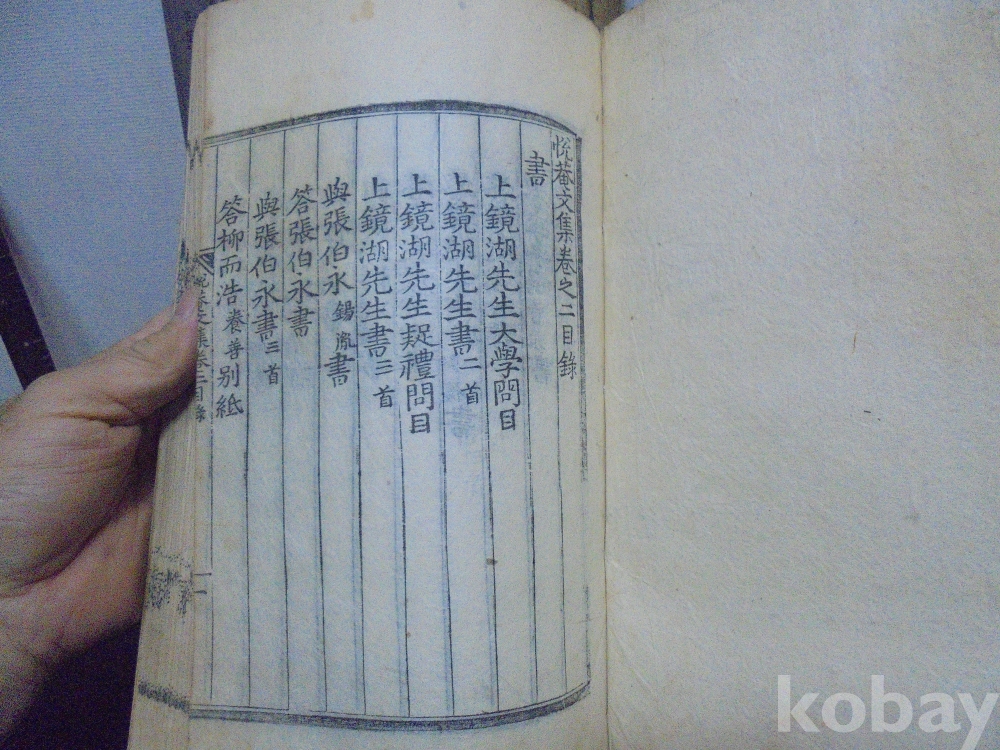 悅菴文集卷之二目錄
書
上鏡湖先生大學問目
上鏡湖先生書二首
上鏡湖先生疑禮問目
上鏡湖先生書三首
與張伯永錫胤書
答張伯永書
與張伯永書三首
答柳而浩養善別紙
悅菴文集卷二目錄
一
kobay